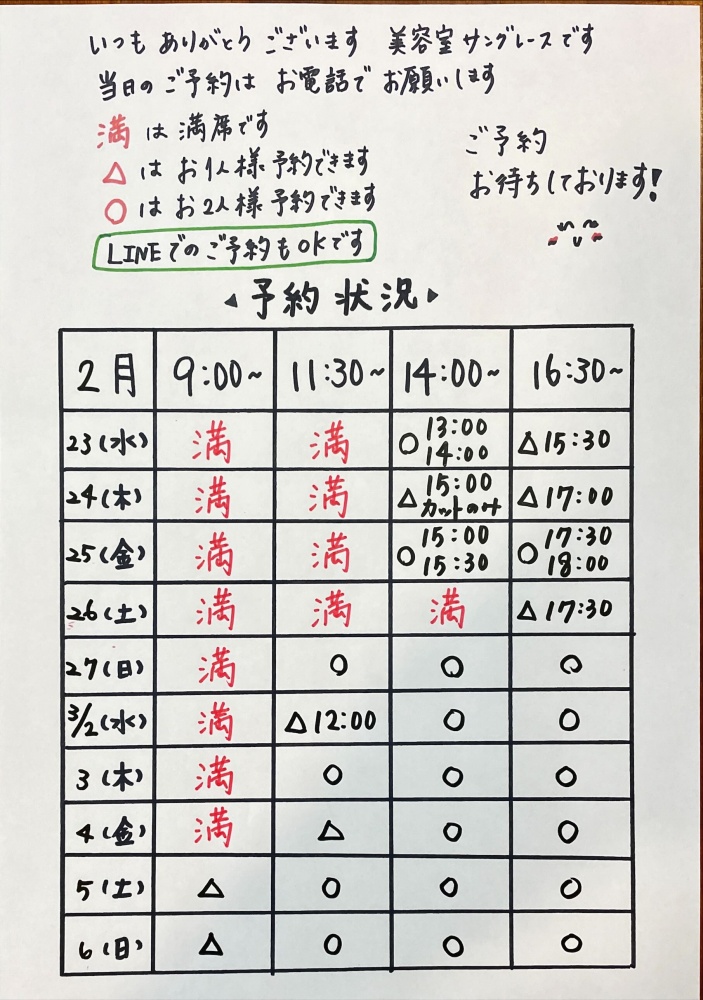 いつも ありがとう ございます 美容室 サングレースです
当日の ご予約は お電話で お願いします
満 は 満席です
△ は お1人様 予約できます
○ は お2人様 予約できます
LINEでの ご予約も OKです
ご予約
お待ちしております!
◂ 予約 状況 ▸
2月 9:00~ 11:30~ 14:00~ 16:30~
23(水) 満 満 ○ 13:00 14:00 △15:30
24(木) 満 満 △ 15:00 カットのみ △17:00
25(金) 満 満 ○ 15:00 15:30 ○ 17:30 18:00
26(土) 満 満 満 △17:30
27(日) 満 ○ ○ ○
3/2(水) 満 △12:00 ○ ○
3(木) 満 ○ ○ ○
4(金) 満 △ ○ ○
5(土) △ ○ ○ ○
6(日) △ ○ ○ ○